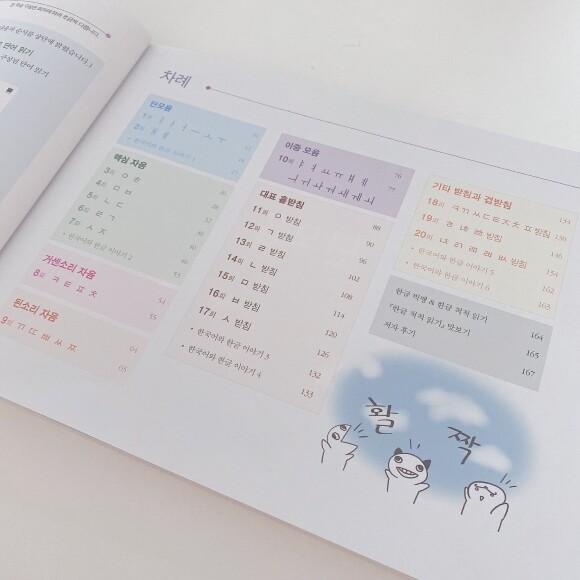 차례
단모음
1회 ㅏ ㅓ ㅣ ㅡ ㅗ ㅜ
2회 ㅐ ㅔ
• 한국어와 한글 이야기 1
핵심 자음
3회 ㅇ ㅎ
4회 ㅁ ㅂ
5회 ㄴ ㄷ
6회 ㄹ ㄱ
7회 ㅅ ㅈ
• 한국어와 한글 이야기 2
거센소리 자음
8회 ㅋ ㅌ ㅍ ㅊ 54
55
된소리 자음
9회 ㄲ ㄸ ㅃ ㅆ ㅉ 64
65
이중 모음
10회 ㅑ ㅕ ㅛ ㅠ ㅒ ㅖ 76
ㅢ ㅟ ㅘ ㅝ ㅙ ㅞ ㅚ 77
대표 홑받침
11회 ㅇ 받침 88
12회 ㄱ 받침 90
13회 ㄹ 받침 96
14회 ㄴ 받침 102
15회 ㅁ 받침 108
16회 ㅂ 받침 114
17회 ㅅ 받침 120
• 한국어와 한글 이야기 3 126
• 한국어와 한글 이야기 4 132
133
기타 받침과 겹받침
18회 ㅋ ㄲ ㅆ ㄷ ㅌ ㅈ ㅊ ㅍ 받침 134
19회 받침 138
20회 받침 146
• 한국어와 한글 이야기 5 154
• 한국어와 한글 이야기 6 162
163
한글 빙뱅 & 한글 척척 읽기 164
『한글 척척 읽기』 맛보기 165
저자 후기 167
활
짝